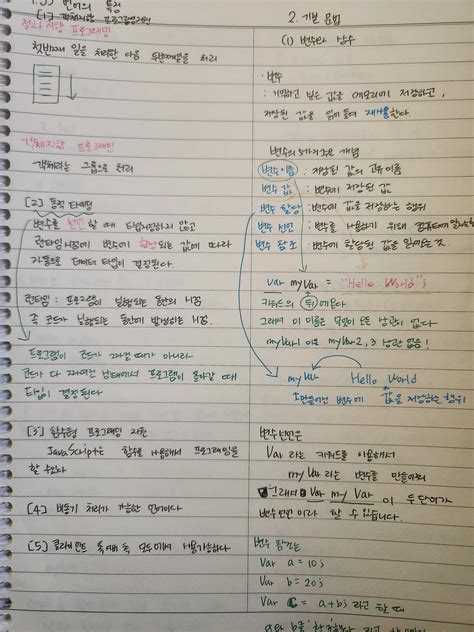 1. JS 언어의 특징
(1) 객체지향 프로그래밍 지원
절차지향 프로그래밍
첫번째 일을 처리한 다음 두번째일을 처리
객체지향 프로그래밍
객체라는 그룹으로 처리
[2] 동적 타이핑
변수를 선언할 때 타입지정하지 않고
런타임 시점에 변수에 할당되는 값에 따라
자동으로 데이터 타입이 결정된다.
런타임 : 프로그램이 실행되는 동안의 시점
즉 코드가 실행되는 동안에 발생하는 시점.
프로그램이 코드가 짜여질 때가 아니라
코드가 다 짜여진 상태에서 프로그램이 돌아갈 때
타입이 결정된다
[3] 함수형 프로그래밍 지원
JavaScript는 함수를 사용해서 프로그래밍을
할 수있다
[4] 비동기 처리가 가능한 언어이다
[5] 클라이언트 측 서버 측 모두에서 사용가능하다
2. 기본 문법
(1) 변수와 상수
· 변수
: 기억하고 싶은 값을 메모리에 저장하고,
저장된 값을 읽어 들여 재사용한다.
변수의 5가지 주요 개념
변수 이름 : 저장된 값의 고유 이름
변수 값 : 변수에 저장된 값
변수 할당 : 변수에 값을 저장하는 행위
변수 선언 : 변수를 사용하기 위해 컴퓨터에 알리는 행위
변수 참조 : 변수에 할당된 값을 읽어오는 것
var myVar = "Hello World";
키워드의 뒤에 온다
그래서 이 이름은 무엇이 오든 상관이 없다
myVar1 이든 myVar 2, 3 상관 없음!
myVar Hello World
만들어진 변수에 값을 저장하는 행위
변수선언은
Var 라는 키워드를 이용해서
my Var 라는 변수를 만들어줘
그래서 Var my Var 이 두 단어가
변수선언 이라 할 수 있습니다.
변수 참조는
Var a = 10;
Var b = 20;
Var c = a+b; 라고 할 때
a와 b를